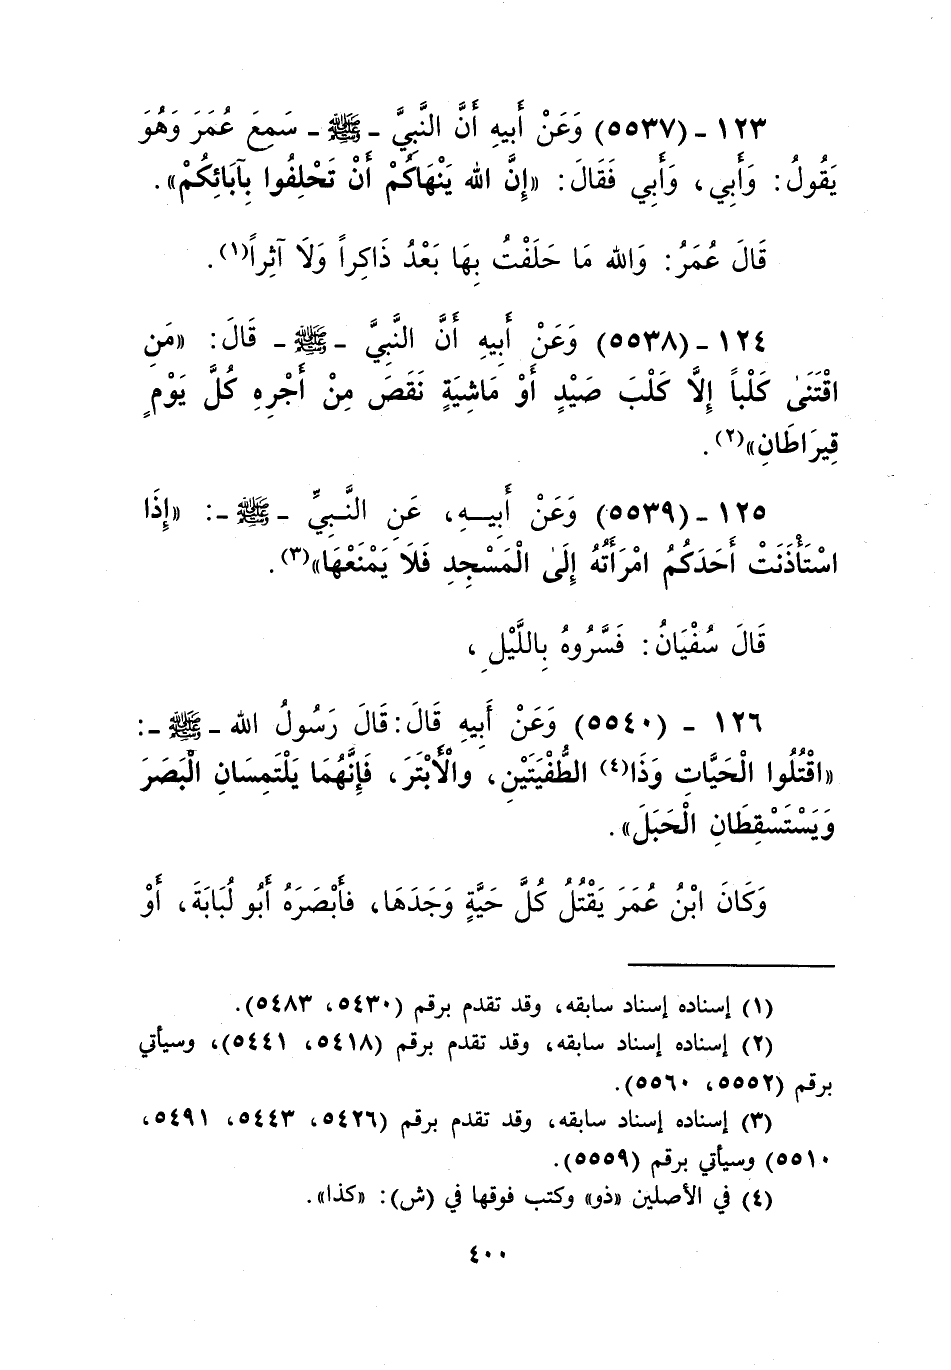 ١٢٣ - (٥٥٣٧) وَعَنْ أَبِيهِ أَنَّ النَّبِيَّ - ﷺ - سَمِعَ عُمَرَ وَهُوَ
يَقُولُ: وَأَبِي، وَأَبِي فَقَالَ: «إِنَّ الله يَنْهَاكُمْ أَنْ تَحْلِفُوا بِآبَائِكُمْ».
قَالَ عُمَرُ: وَالله مَا حَلَفْتُ بِهَا بَعْدُ ذَاكِراً وَلَا آثِراً(١).
١٢٤ - (٥٥٣٨) وَعَنْ أَبِيهِ أَنَّ النَّبِيَّ - ﷺ - قَالَ: «مَنِ
اقْتَنَىٰ كَلْباً إِلَّا كَلْبَ صَيْدٍ أَوْ مَاشِيَةٍ نَقَصَ مِنْ أَجْرِهِ كُلَّ يَوْمٍ
قِيرَاطَانِ»(٢).
١٢٥ - (٥٥٣٩) وَعَنْ أَبِيهِ، عَنِ النَّبِيِّ - ﷺ -: «إِذَا
اسْتَأْذَنَتْ أَحَدَكُمُ امْرَأَتُهُ إِلَىٰ الْمَسْجِدِ فَلَا يَمْنَعْهَا»(٣).
قَالَ سُفْيَانُ: فَسَّرُوهُ بِاللَّيْلِ،
١٢٦ - (٥٥٤٠) وَعَنْ أَبِيهِ قَالَ: قَالَ رَسُولُ الله - ﷺ -:
«اقْتُلُوا الْحَيَّاتِ وَذَا(٤) الطُّفْيَتَيْنِ، والْأَبْتَرَ، فَإِنَّهُمَا يَلْتَمِسَانِ الْبَصَرَ
وَيَسْتَسْقِطَانِ الْحَبَلَ».
وَكَانَ ابْنُ عُمَرَ يَقْتُلُ كُلَّ حَيَّةٍ وَجَدَهَا، فأَبْصَرَهُ أَبُو لُبَابَةَ، أَوْ
(١) إسناده إسناد سابقه، وقد تقدم برقم (٥٤٣٠، ٥٤٨٣).
(٢) إسناده إسناد سابقه، وقد تقدم برقم (٥٤١٨، ٥٤٤١)، وسيأتي
برقم (٥٥٥٢، ٥٥٦٠).
(٣) إسناده إسناد سابقه، وقد تقدم برقم (٥٤٢٦، ٥٤٤٣، ٥٤٩١،
٥٥١٠) وسيأتي برقم (٥٥٥٩).
(٤) في الأصلين «ذو» وكتب فوقها في (ش): «كذا».
٤٠٠